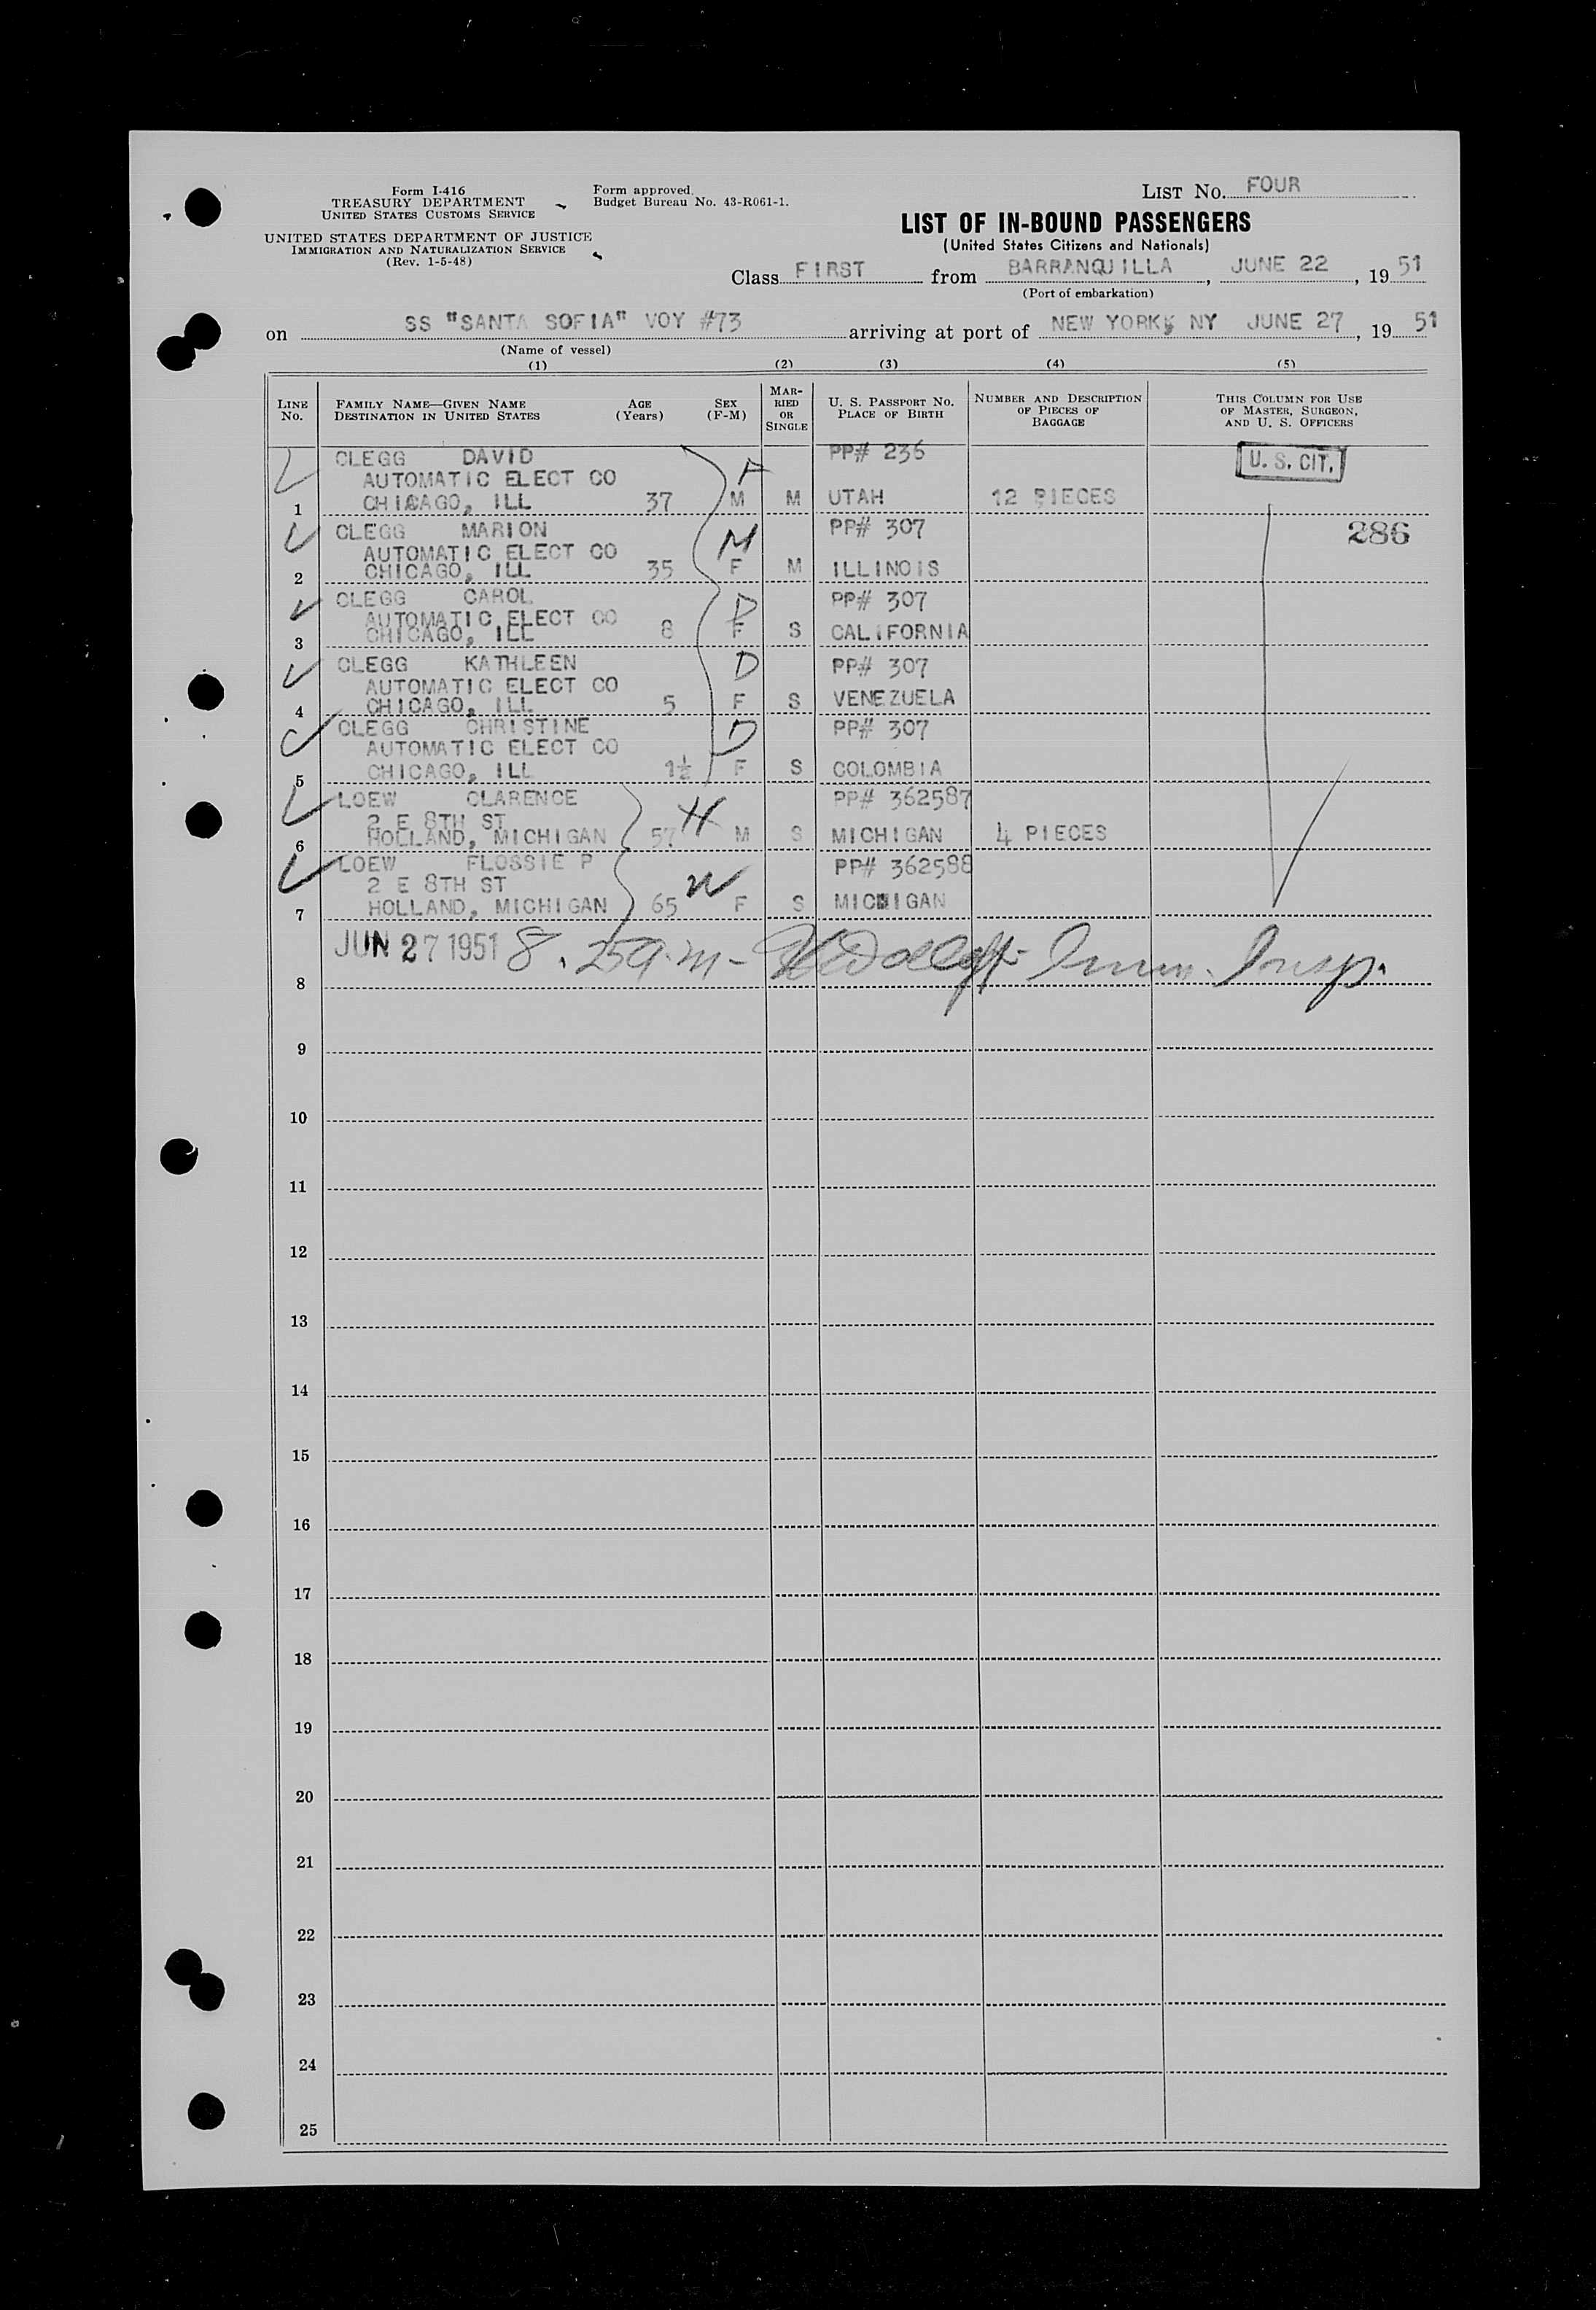 Form I-416
TREASURY DEPARTMENT
UNITED STATES CUSTOMS SERVICE
UNITED STATES DEPARTMENT OF JUSTICE
IMMIGRATION AND NATURALIZATION SERVICE
(Rev. 1-5-48)
Form approved.
Budget Bureau No. 43-R061-1.
LIST No. FOUR
LIST OF IN-BOUND PASSENGERS
(United States Citizens and Nationals)
Class FIRST from BARRANQUILLA, JUNE 22, 19 51
(Port of embarkation)
on SS "SANTA SOFIA" VOY #73 arriving at port of NEW YORK, NY JUNE 27, 19 51
(Name of vessel)
(1) (2) (3) (4) (5)
LINE No.
FAMILY NAME—GIVEN NAME
DESTINATION IN UNITED STATES
AGE (Years)
SEX (F-M)
MARRIED OR SINGLE
U. S. PASSPORT NO.
PLACE OF BIRTH
NUMBER AND DESCRIPTION OF PIECES OF BAGGAGE
THIS COLUMN FOR USE OF MASTER, SURGEON, AND U. S. OFFICERS
CLEGG DAVID PP# 236 U. S. CIT.
AUTOMATIC ELECT CO F
1 CHICAGO, ILL 37 M M UTAH 12 PIECES
CLEGG MARION M PP# 307 286
AUTOMATIC ELECT CO
2 CHICAGO, ILL 35 F M ILLINOIS
CLEGG CAROL D PP# 307
AUTOMATIC ELECT CO
3 CHICAGO, ILL 8 F S CALIFORNIA
CLEGG KATHLEEN D PP# 307
AUTOMATIC ELECT CO
4 CHICAGO, ILL 5 F S VENEZUELA
CLEGG CHRISTINE D PP# 307
AUTOMATIC ELECT CO
5 CHICAGO, ILL 1½ F S COLOMBIA
LOEW CLARENCE H PP# 362587
2 E 8TH ST
6 HOLLAND, MICHIGAN 57 M S MICHIGAN 4 PIECES
LOEW FLOSSIE P W PP# 362588
2 E 8TH ST
7 HOLLAND, MICHIGAN 65 F S MICHIGAN
JUN 27 1951 8.25 a.m - Imm. Insp.
8
9
10
11
12
13
14
15
16
17
18
19
20
21
22
23
24
25